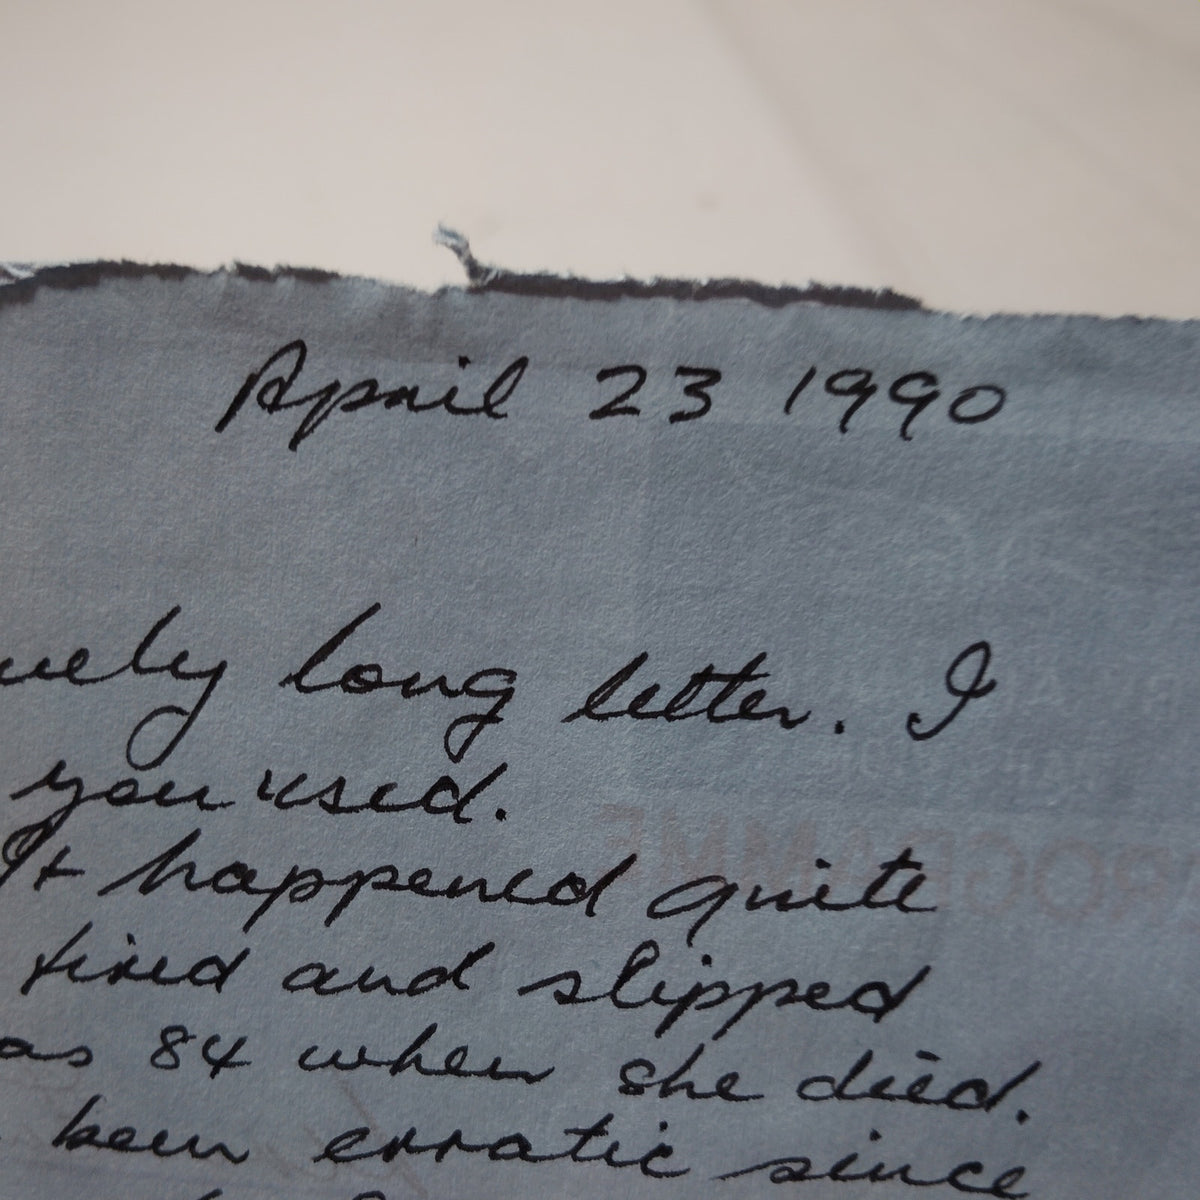 April 23 1990
long letter. I
you used.
It happened quite
tired and slipped
as 84 when she died.
been erratic since